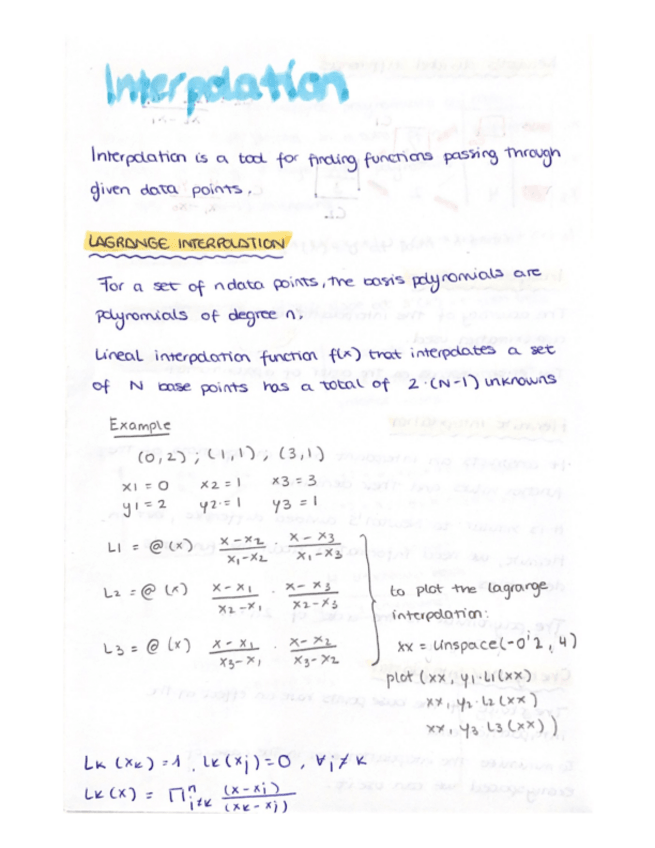 Interpolation
Interpolation is a tool for finding functions passing through
given data points.
LAGRANGE INTERPOLATION
For a set of n data points, the basis polynomials are
polynomials of degree n.
Lineal interpolation function f(x) that interpolates a set
of N base points has a total of 2·(N-1) unknowns
Example
(0,2) ; (1,1) ; (3,1)
x1 = 0 x2 = 1 x3 = 3
y1 = 2 y2 = 1 y3 = 1
L1 = @(x) x-x2/x1-x2 · x-x3/x1-x3
L2 = @(x) x-x1/x2-x1 · x-x3/x2-x3
L3 = @(x) x-x1/x3-x1 · x-x2/x3-x2
to plot the lagrange
interpolation:
xx = linspace(-0'2, 4)
plot (xx, y1·L1(xx)
xx, y2·L2(xx)
xx, y3·L3(xx))
Lk (xk) = 1, Lk(xj) = 0, ∀j≠k
Lk(x) = ∏ⁿj≠k (x-xj)/(xk-xj)